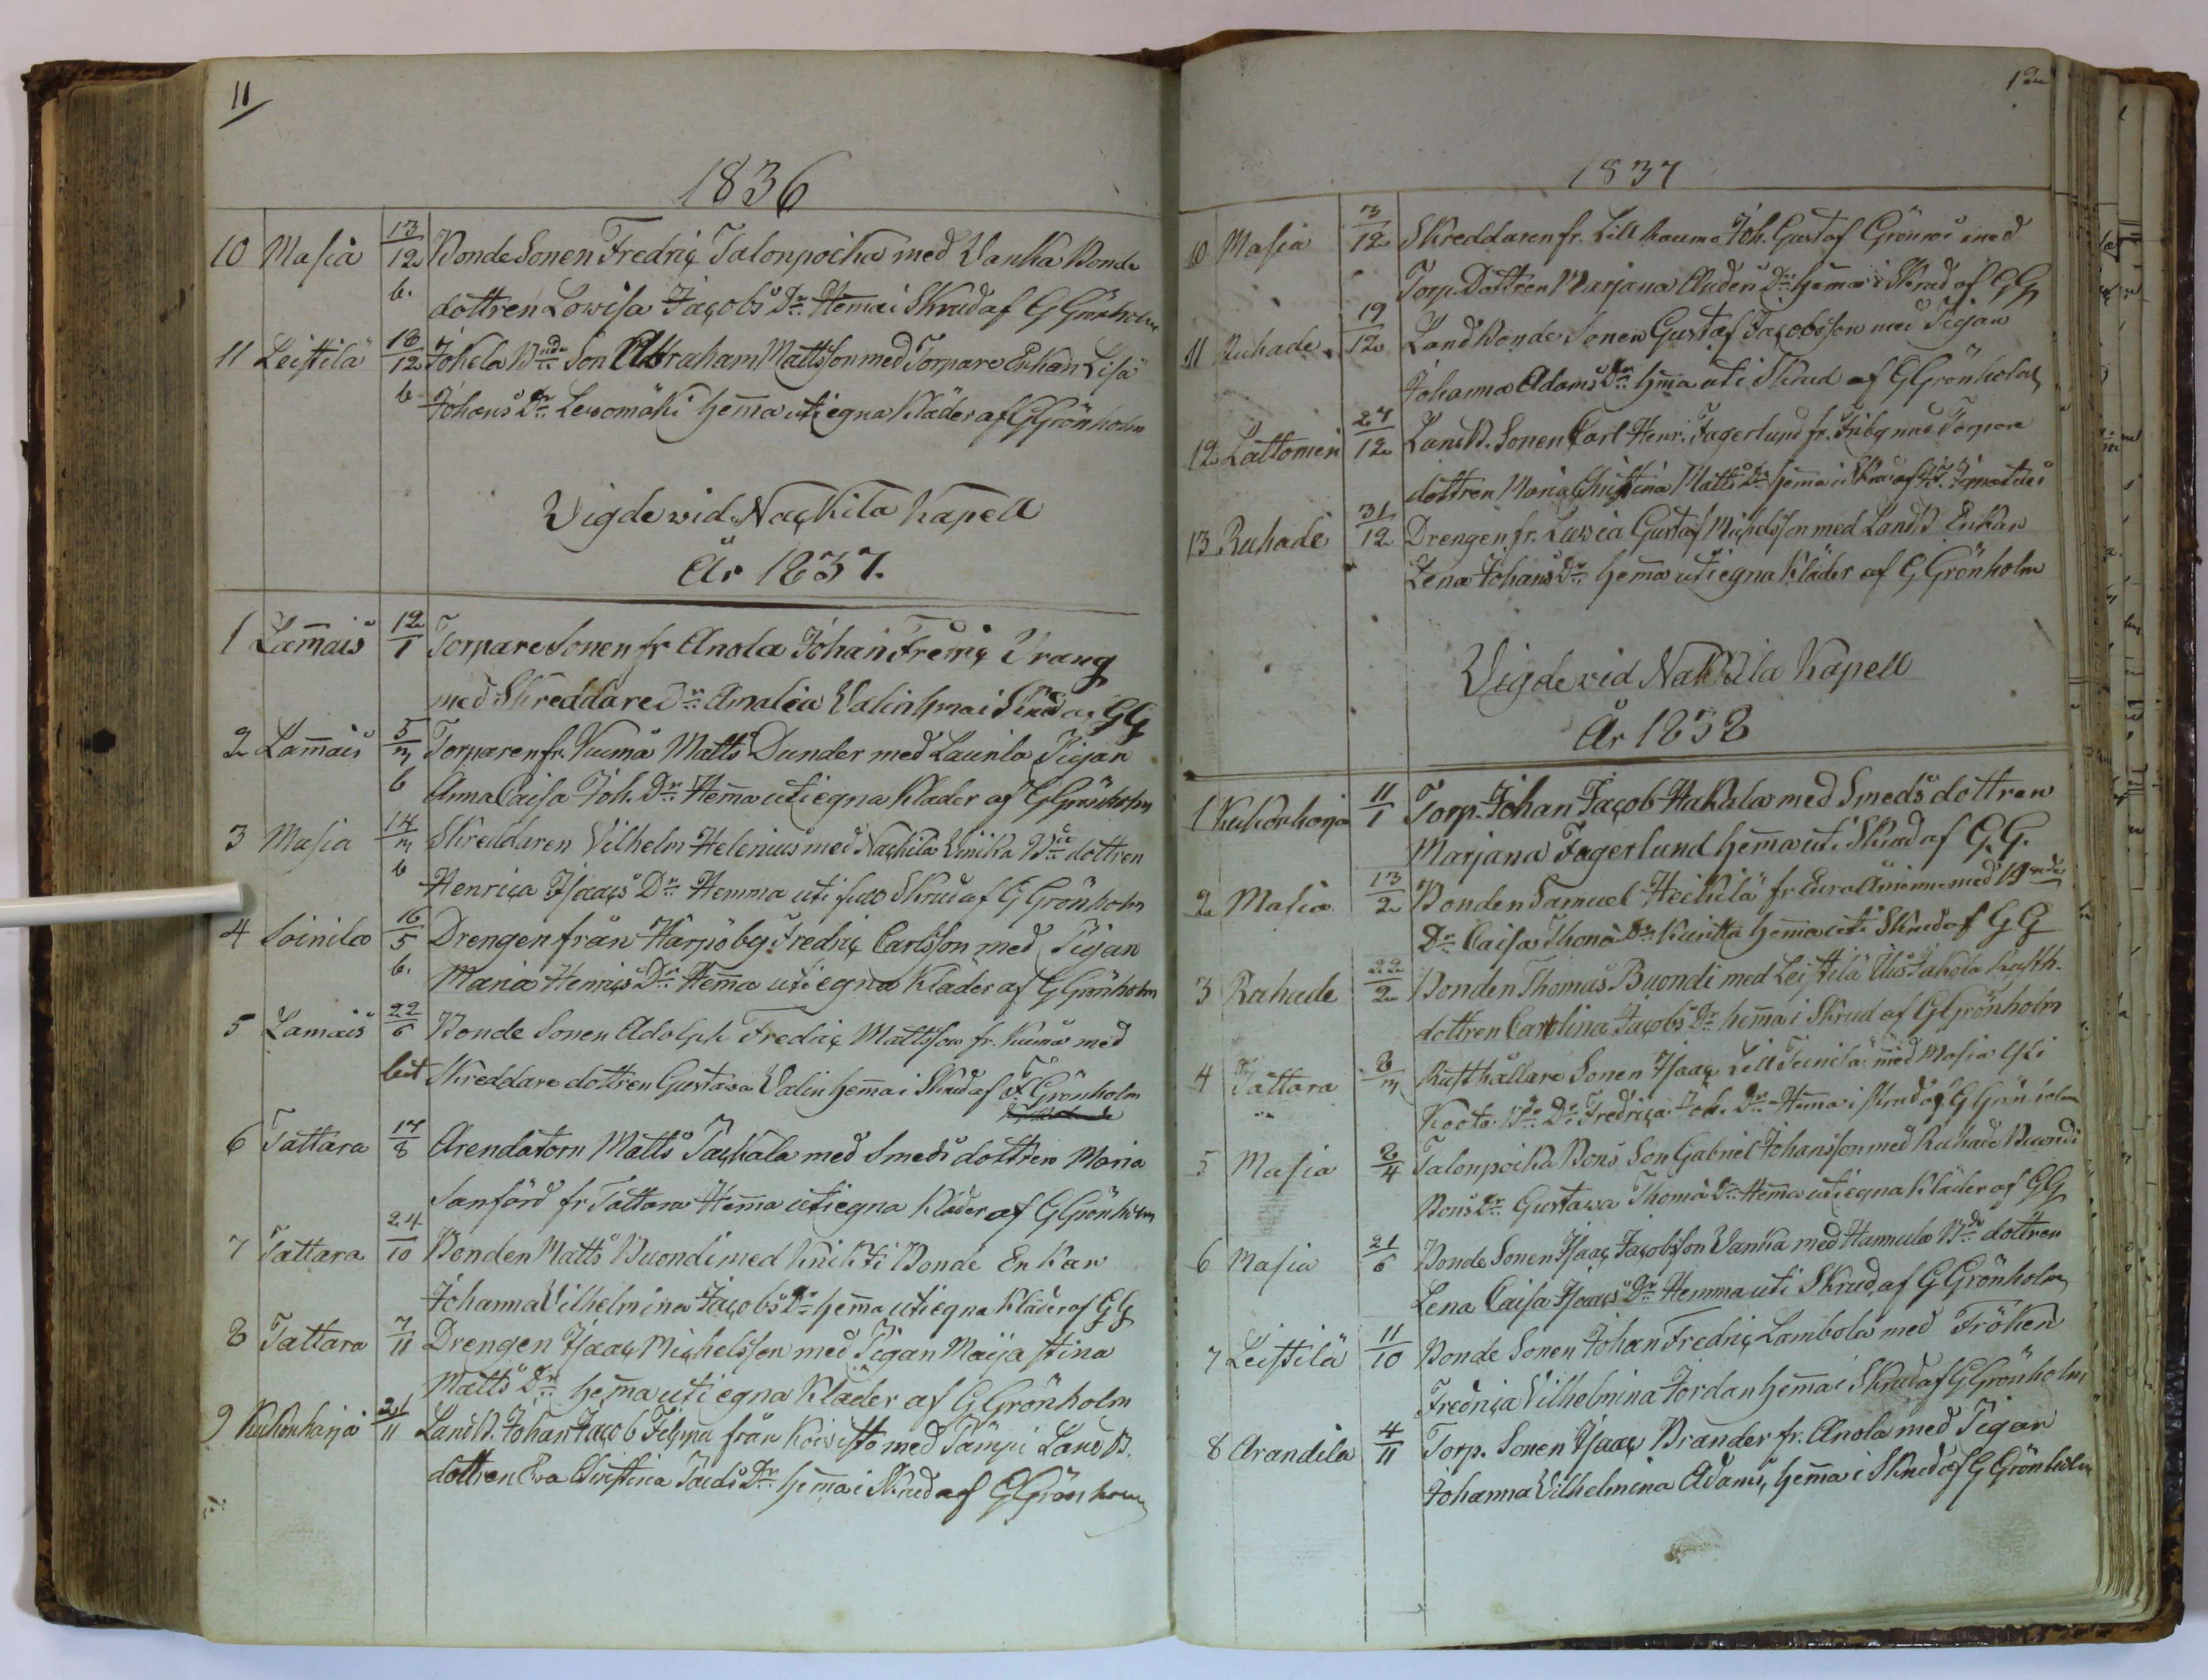 11
1836
10 Masia 13/12 BondeSonen Fredriç Talonpoika med Vanha Bonde
b. dottren Lowisa Jaçobs Dr Hem̄a i Skrud af G Grönholm
11 Leistilä 18/12 Jokela Bnde Son Abraham Mattsson med Torpare Enkan Lisa
b Johans Dr Lewomäki hem̄a uti egna Kläder af G Grönholm
Vigde vid Naçkila Kapell
År 1837.
1 Lam̄ais 12/1 Torpare Sonen fr Anola Johan Fredriç Vrang
med Skreddare Dr Amalia Valin hma i Skrud af GG
2 Lam̄ais 5/3 Torparen fr. Kumå Matts Dunder med Launila Pigan
b Anna Caisa Joh. Dr Hem̄a uti egna Kläder af G Grönholm
3 Masia 14/3 Skreddaren Vilhelm Helenius med Naçkila Bde dottren
b Henriça Isaaçs Dr Hemma uti full Skrud af G Grönholm
4 Soinila 16/5 Drengen från Harjoby Fredriç Carlsson med Pigan
b. Maria Henriçs Dr Hem̄a uti egna Kläder af G Grönholm
5 Lamais 22/6 Bonde Sonen Adolph Fredriç Mattsson fr. Kumå med
Skreddare dottren Gustava Valin hem̄a i Skrud af Grönholm
6 Tattara 17/8 Arendatorn Matts Taçkala med Smeds dottren Maria
Sanford fr Tattara Hem̄a uti egna Kläder af G Grönholm
7 Tattara 24/10 Bonden Matts Buondi med Knihti Bonde Enkan
Johanna Vilhelmina Jaçobs Dr hem̄a uti egna Kläder af GG
8 Tattara 7/11 Drengen Isaaç Miçhelsson med Pigan Maija Stina
Matts Dr hem̄a uti egna Kläder af G Grönholm
9 Kukonharja 21/11 LandB. Johan Jaçob Filppu från Koivisto med Tämpi Land B.
dottren Eva Christina Dr hem̄a i Skrud af G Grönholm
12
1837
10 Masia 3/12 Skreddaren fr. Lill Raumo Joh. Gustaf Grönroos med
Torp. Dottren Marjana Anders Dr hem̄a i Skrud af GG
11 Ruhade 19/12 Land Bonde Sonen Gustaf Jaçobsson med Pigan
Johanna Adams Dr hem̄a uti Skrud af G Grönholm
12 Lattomeri 27/12 LandB. Sonen Carl Henr. Fagerlund fr. Friby med Torpare
dottren Maria Christina Matts Dr hem̄a i Skrud af
13 Ruhade 31/12 Drengen fr. Luvia Gustaf Michelsson med LandB Enkan
Lena Johans Dr hem̄a uti egna Kläder af G Grönholm
Vigde vid Nakkila Kapell
År 1838
1 Kukonharja 11/1 Torp. Johan Jaçob Hakala med Smeds dottren
Marjana Fagerlund hem̄a uti Skrud af G.G.
2 Masia 13/2 Bonden Samuel Heikkilä fr. Eura med Bnde
Dr Caisa Thoma Dr Kuritta hem̄a uti Skrud af GG
3 Ruhade 22/2 Bonden Thomas Buondi med Leistilä Uusi Jakola Rusth.
dottren Carolina Jaçobs Dr hem̄a i Skrud af G Grönholm
4 Tattara 8/3 Rusthållare Sonen Isaaç Lill Teinila med Masia Yli
Koota Bde Dr Fredriça Joh. Dr Hem̄a i Skrud af G Grönholm
5 Masia 2/4 Talonpoika Bons Son Gabriel Johansson med Ruhade Buondi
Bons Dr Gustava Thoma Dr Hem̄a uti egna Kläder af GG
6 Masia 21/6 Bonde Sonen Isaaç Jaçobsson Vanha med Hannula Bde dottren
Lena Caisa Isaaçs Dr Hemma uti Skrud af G Grönholm
7 Leistilä 11/10 Bonde Sonen Johan Fredriç Lambola med Fröken
Fredriça Vilhelmina Jordan hem̄a i Skrud af G Grönholm
8 Arandila 4/11 Torp. Sonen Isaaç Brander fr. Anola med Pigan
Johanna Vilhelmina Adams, hem̄a i Skrud af G Grönholm